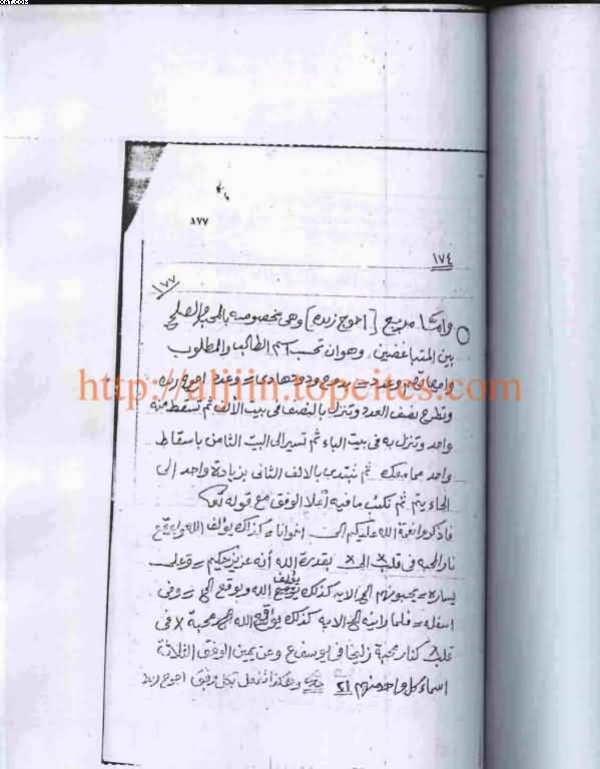 ٨٧٧
١٧٤
١٧٧
وأما مربع [اجوج زبده] وهى مخصوصه بالمحبة والصلح
بين المتباغضين وهو ان تحسب اسم الطالب والمطلوب
http://aljinn.topcities.com
وتطرح نصف العدد وتنزل بالنصف فى بيت الالف ثم تسقط منه
واحد وتنزل به فى بيت الباء ثم تسير الى البيت الثامن باسقاط
واحد مما معك ثم تبتدى بالالف الثانى بزيادة واحد الى
الحاء يتم ثم تكتب ما فيه أعلا الوفق مع قوله تعا
فاذكروا نعمة الله عليكم الى اخوانا = كذلك يؤلف الله ويوقع
نار المحبه فى قلب x الى x بقدرة الله أنه عزيز حكيم = وعلى
يساره = يحبونهم الى الايه كذلك يؤلف الله ويوقع الى = وفى
اسفله = فلما راينه الى الايه كذلك يوقع الله محبة x فى
قلب كنار محبة زليخا فى يوسف ع وعن يمين الوفق الثلاثة
اسماء كل واحد منهم ٢١ وهكذا تفعل بكل وفق اجوج